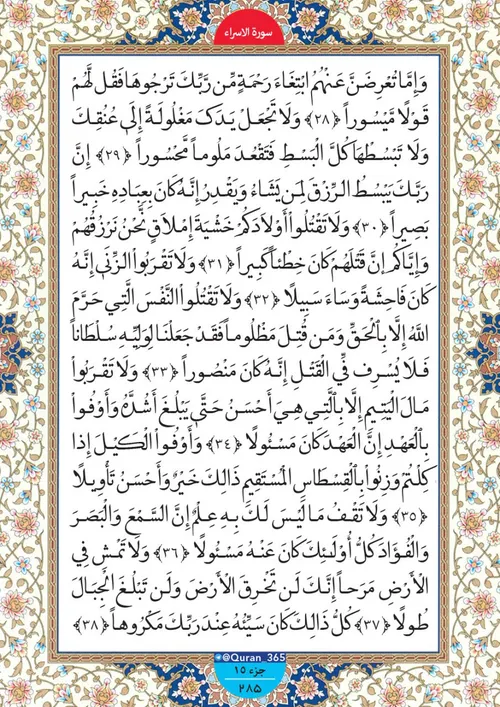 سورة الاسراء
وَإِمَّا تُعْرِضَنَّ عَنْهُمُ ابْتِغَاءَ رَحْمَةٍ مِّن رَّبِّكَ تَرْجُوهَا فَقُل لَّهُمْ
قَوْلًا مَّيْسُوراً ﴿٢٨﴾ وَلَا تَجْعَلْ يَدَكَ مَغْلُولَةً إِلَى عُنُقِكَ
وَلَا تَبْسُطْهَا كُلَّ الْبَسْطِ فَتَقْعُدَ مَلُوماً مَّحْسُوراً ﴿٢٩﴾ إِنَّ
رَبَّكَ يَبْسُطُ الرِّزْقَ لِمَن يَشَاءُ وَيَقْدِرُ إِنَّهُ كَانَ بِعِبَادِهِ خَبِيراً
بَصِيراً ﴿٣٠﴾ وَلَا تَقْتُلُوا أَوْلَادَكُمْ خَشْيَةَ إِمْلَاقٍ نَّحْنُ نَرْزُقُهُمْ
وَإِيَّاكُمْ إِنَّ قَتْلَهُمْ كَانَ خِطْئاً كَبِيراً ﴿٣١﴾ وَلَا تَقْرَبُوا الزِّنَى إِنَّهُ
كَانَ فَاحِشَةً وَسَاءَ سَبِيلًا ﴿٣٢﴾ وَلَا تَقْتُلُوا النَّفْسَ الَّتِي حَرَّمَ
اللَّهُ إِلَّا بِالْحَقِّ وَمَن قُتِلَ مَظْلُوماً فَقَدْ جَعَلْنَا لِوَلِيِّهِ سُلْطَاناً
فَلَا يُسْرِف فِّي الْقَتْلِ إِنَّهُ كَانَ مَنْصُوراً ﴿٣٣﴾ وَلَا تَقْرَبُوا
مَالَ الْيَتِيمِ إِلَّا بِالَّتِي هِيَ أَحْسَنُ حَتَّى يَبْلُغَ أَشُدَّهُ وَأَوْفُوا
بِالْعَهْدِ إِنَّ الْعَهْدَ كَانَ مَسْئُولًا ﴿٣٤﴾ وَأَوْفُوا الْكَيْلَ إِذَا
كِلْتُمْ وَزِنُوا بِالْقِسْطَاسِ الْمُسْتَقِيمِ ذَالِكَ خَيْرٌ وَأَحْسَنُ تَأْوِيلًا
﴿٣٥﴾ وَلَا تَقْفُ مَا لَيْسَ لَكَ بِهِ عِلْمٌ إِنَّ السَّمْعَ وَالْبَصَرَ
وَالْفُؤَادَ كُلُّ أُولَئِكَ كَانَ عَنْهُ مَسْئُولًا ﴿٣٦﴾ وَلَا تَمْشِ فِي
الْأَرْضِ مَرَحاً إِنَّكَ لَن تَخْرِقَ الْأَرْضَ وَلَن تَبْلُغَ الْجِبَالَ
طُولًا ﴿٣٧﴾ كُلُّ ذَالِكَ كَانَ سَيِّئُهُ عِندَ رَبِّكَ مَكْرُوهاً ﴿٣٨﴾
@Quran_365
جزء ١٥
٢٨٥